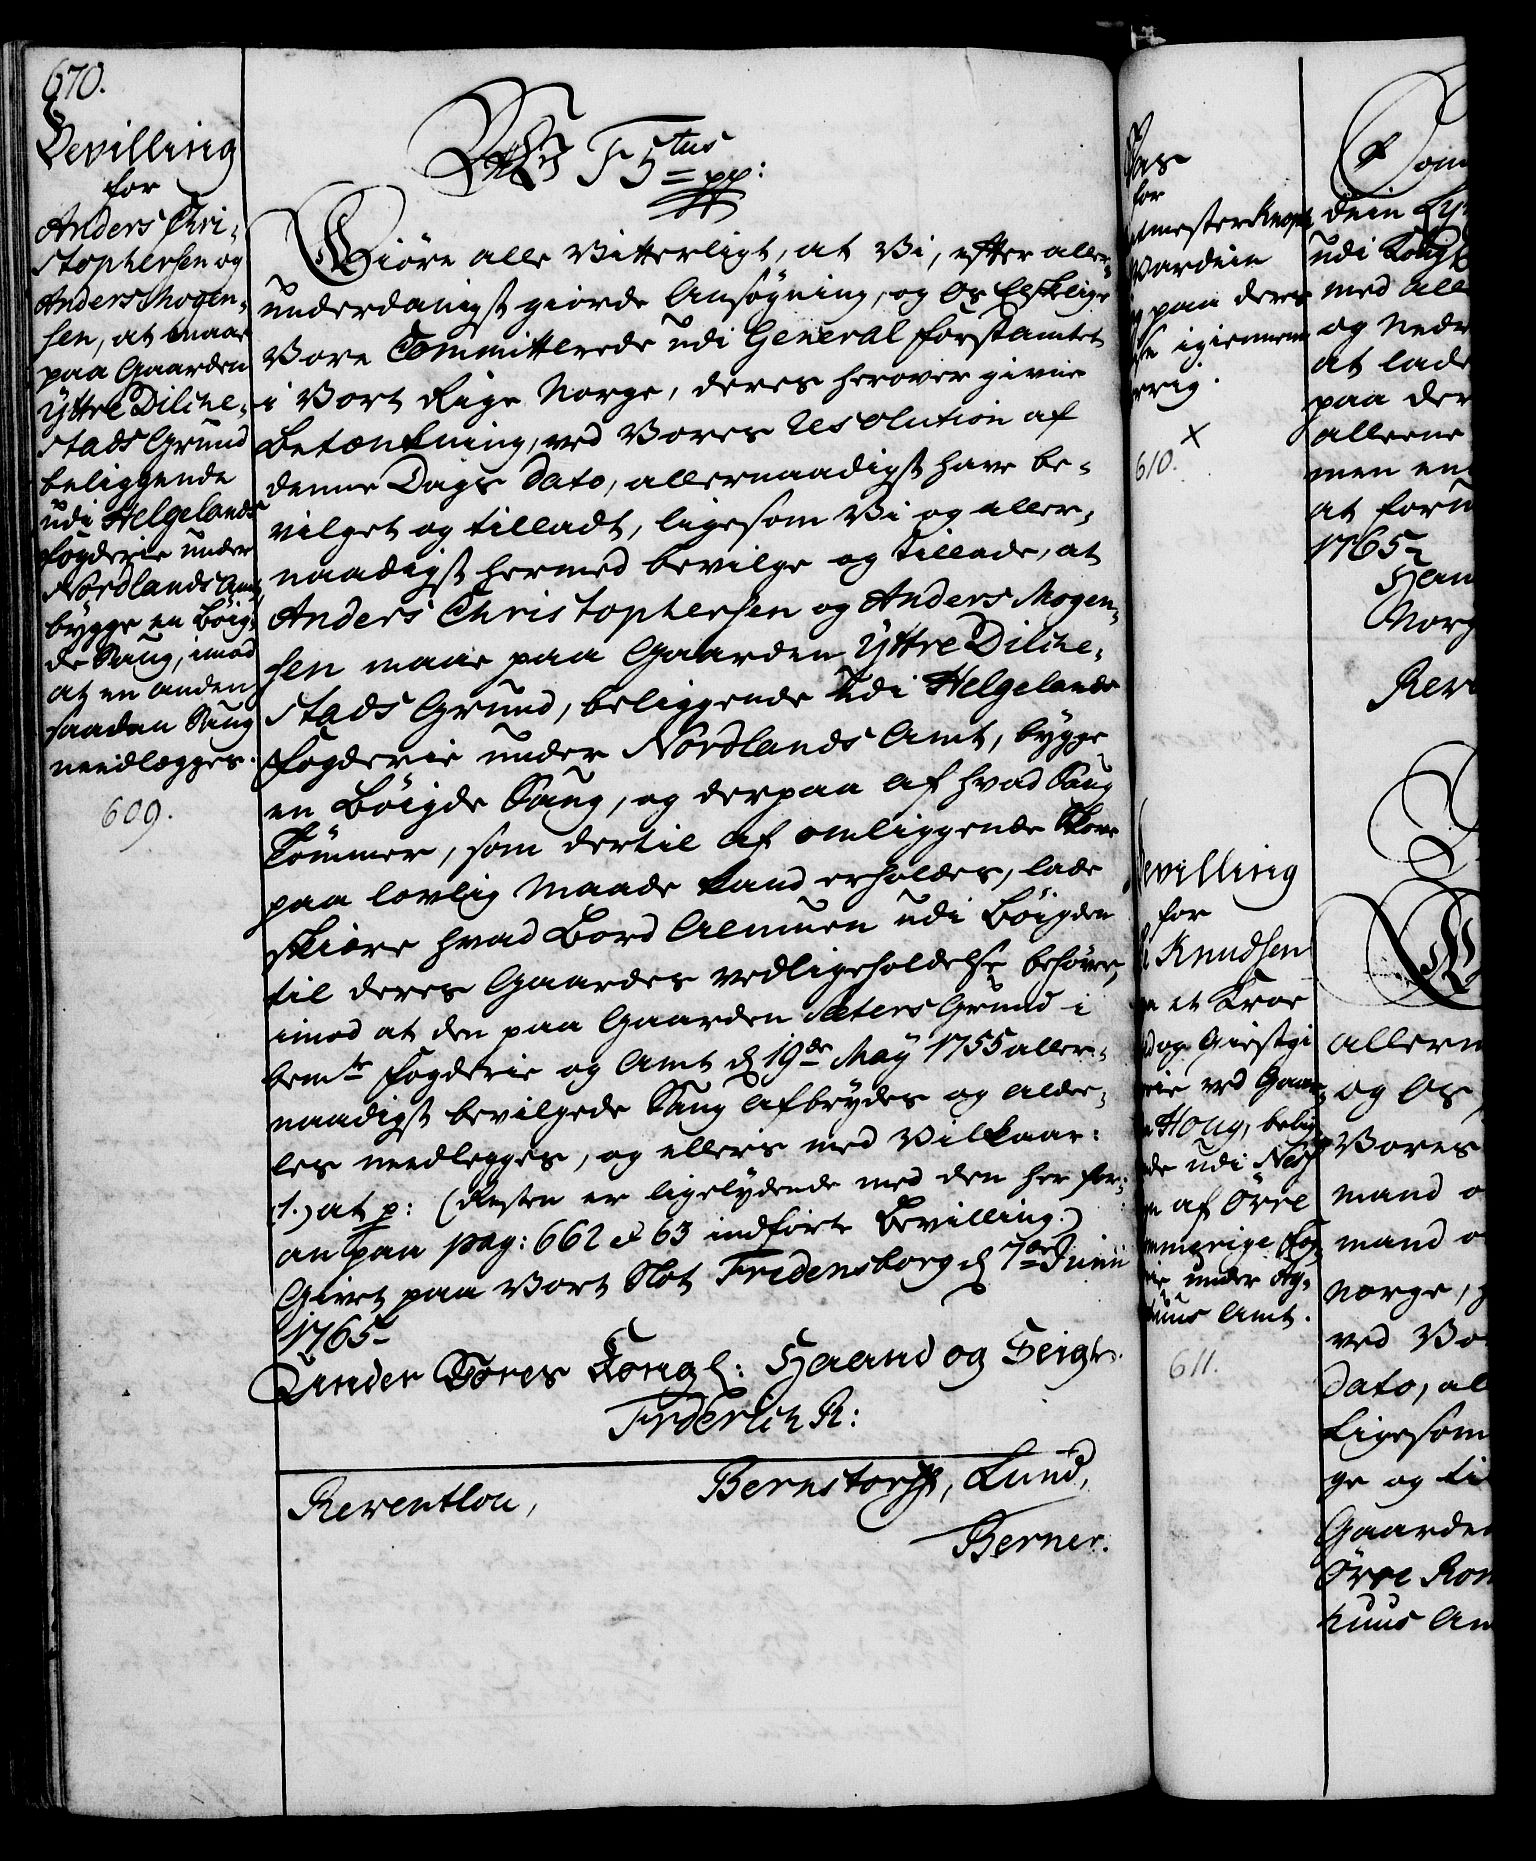 670.
Bevilling
for
Anders Chri-
stophersen og
Anders Mogen-
sen, at maae
paa Gaarden
Yttre Dilche-
stads Grund
beliggende
udi Helgelands
Fogderie under
Nordlands Amt,
bygge en Bøig-
de Saug, imod
at en anden
saadan Saug
needlægges.
609.
Wi F 5tus pp:
Giøre alle Vitterligt, at Vi, efter aller-
underdanigst giorde Ansøgning, og Os Elskelige
Vore Committerede udi General Forstamtet
i Vort Rige Norge, deres herover givne
Betænkning, ved Vores Resolution af
denne Dags Dato, allernaadigst have be-
vilget og tilladt, ligesom Vi og aller-
naadigst hermed bevilge og tillade, at
Anders Christophersen og Anders Mogen-
sen maae paa Gaarden Yttre Dilche-
stads Grund, beliggende udi Helgelands
Fogderie under Nordlands Amt, bygge
en Bøigde Saug, og derpaa af hvad Saug
Tømmer, som dertil af omliggende Skove
paa lovlig Maade kand erholdes, lade
skiære hvad Bord Almuen udi Bøigden
til deres Gaardes vedligeholdelse behøver,
imod at den paa Gaarden Sæters Grund i
bemte Fogderie og Amt d 19de May 1755 aller-
naadigst bevilgede Saug afbrydes og alde-
les needlegges, og ellers med Vilkaar:
1.) at p: (Resten er ligelydende med den her for-
an paa pag: 662 et 63 indførte Bevilling.)
Givet paa Vort Slot Fredensborg d 7de Junii
1765
Under Vores Kongl: Haand og Seigl.
Friderich R:
Reventlou, Bernstorff, Lund,
Berner.
Pas
for
Vardein
paa deres
igiennem
610.
X
Bevilling
for
Knudsen
et Kroe
og Giestgi
ved Gaar-
Houg, belig
udi Nes
af Øvre
under Ag-
huus Amt.
611.
udi Kong
med all
og Neder
at lade
paa der
alleene
men en
at forn
1765
Norg
allern
og Os
Vores
mand o
mand o
Norge,
ved Vo
Dato, al
ligesom
ge og til
Gaarden
Øvre Rom
huus Am